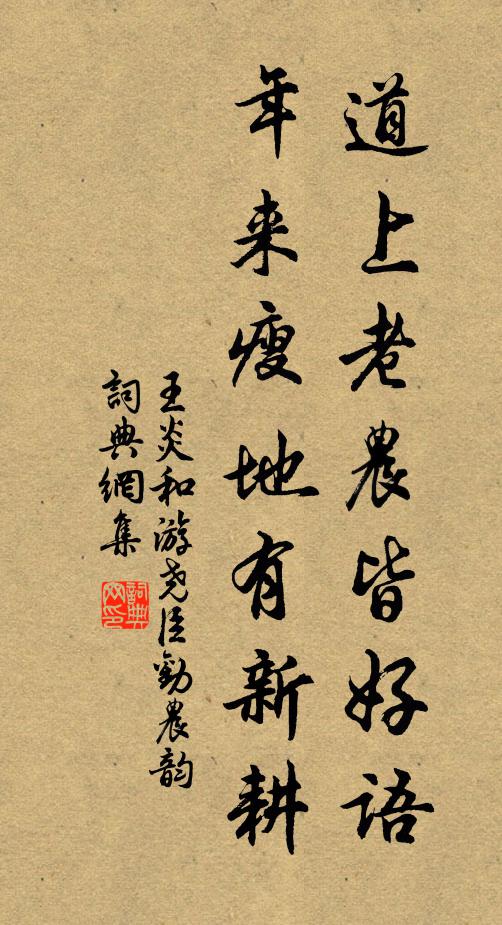 道上老農皆好語
年来瘦地有新耕
王炎和游尧臣勸農韵
詞典網集
詞典
网印